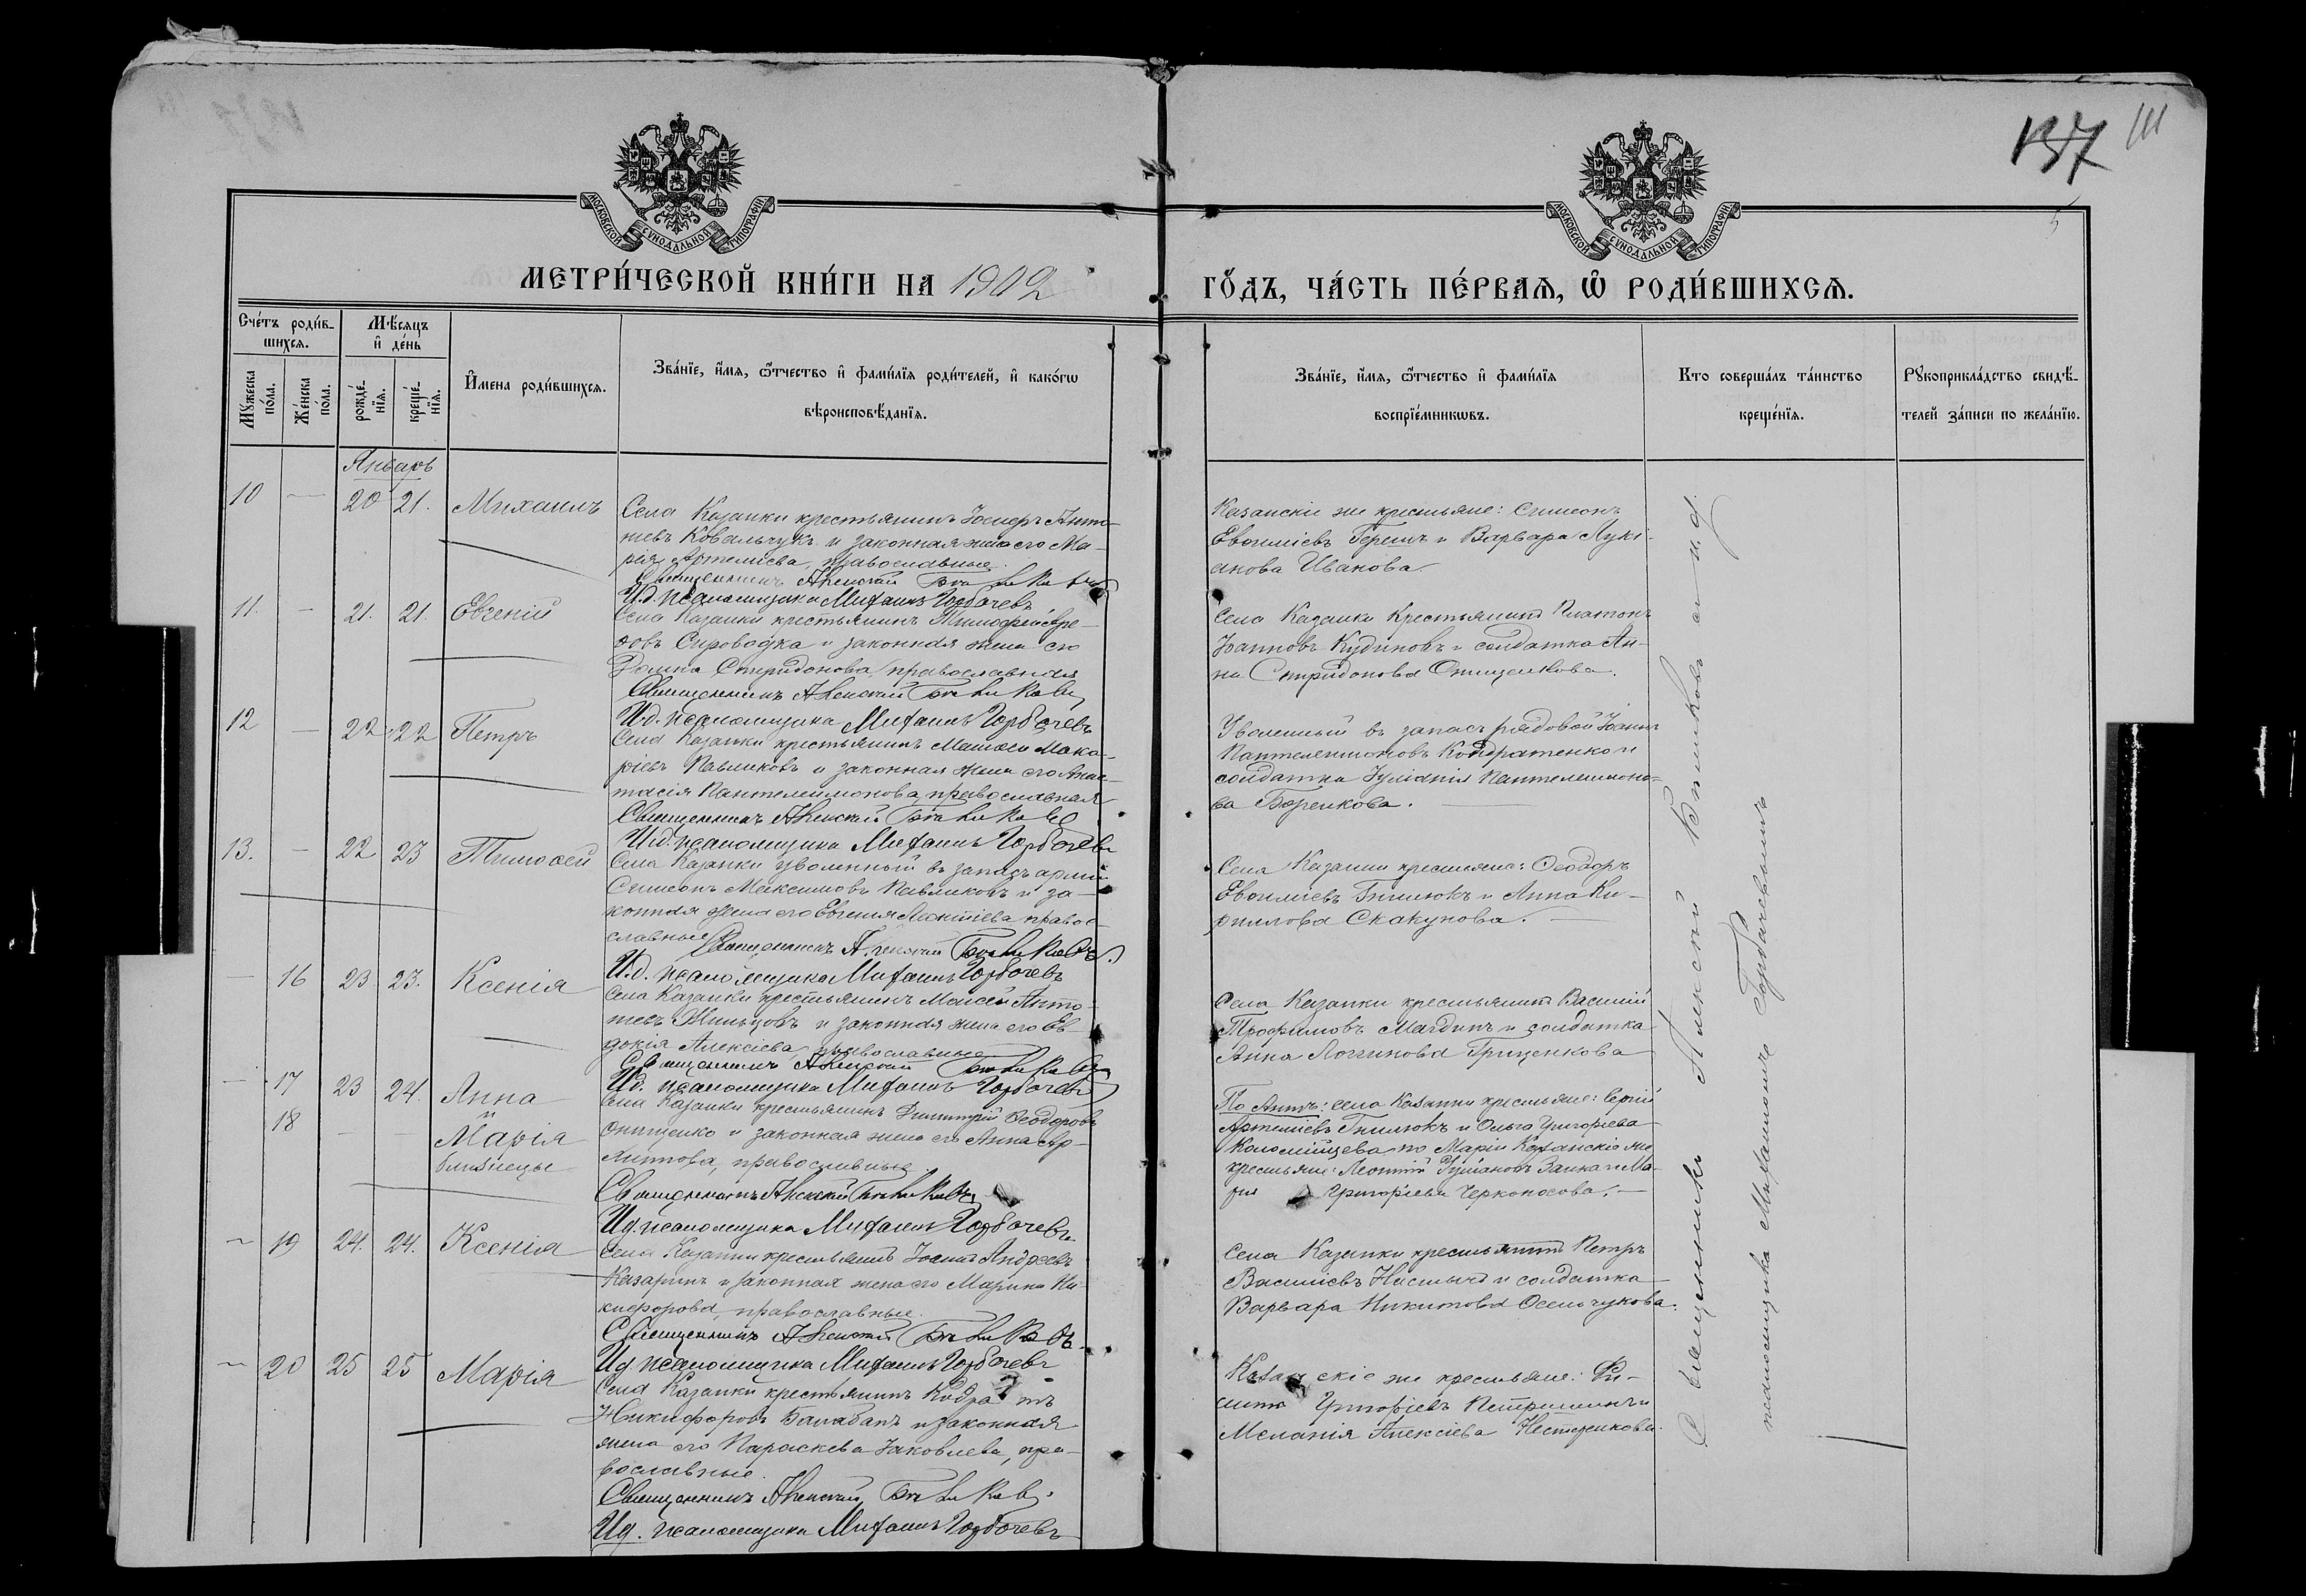 137 111
5
МОСКОВСКОЙ СѴНОДАЛЬНОЙ ТИПОГРАФІИ
МОСКОВСКОЙ СѴНОДАЛЬНОЙ ТИПОГРАФІИ
МЕТРИ́ЧЕСКОЙ КНИ́ГИ НА 1902
ГО́ДЪ, ЧА́СТЬ ПЕ́РВАѦ, Ѽ РОДИ́ВШИХСѦ.
Сче́тъ роди́вшихсѧ.
Мꙋ́жеска по́ла.
Же́нска по́ла.
Мѣ́сяцъ и҆ де́нь
рожде́нїѧ.
креще́нїѧ.
И҆́мена роди́вшихсѧ.
Зва́нїе, и҆́мѧ, ѻ҆́тчество и҆ фами́лїѧ роди́телей, и҆ како́гѡ
вѣроисповѣ́данїѧ.
Зва́нїе, и҆́мѧ, ѻ҆́тчество и҆ фами́лїѧ
воспрїе́мникѡвъ.
Кто соверша́лъ та́инство
креще́нїѧ.
Рꙋкоприкла́дство свидѣ́-
телей за́писи по жела́нїю.
Январь
10 — 20 21. Михаилъ
Села Казанки крестьянинъ Іосифъ Анто-
ніевъ Ковальчукъ и законная жена его Ма-
рія Артеміева, православные.
Священникъ
И.д. псаломщика Митаилъ Горбачевъ
Казанскіе же крестьяне: Симеонъ
Евѳиміевъ и Варвара Лукі-
анова Иванова
11. — 21. 21. Евгеній
Села Казанки крестьянинъ Тимофей
Сыроводка и законная жена его
Спиридонова, православная
Священникъ
И.д. псаломщика Михаилъ Горбачевъ
Села Казанки Крестьянинъ Платонъ
Іоанновъ Кудиновъ и солдатка Ан-
на Спиридонова Онищенкова.
12 — 22 22 Петръ
Села Казанки крестьянинъ Мака-
ріевъ Павликовъ и законная жена его Анас-
тасія Пантелеимонова, православная
Священникъ
И.д. псаломщика Михаилъ Горбачевъ
Уволенный въ запасъ рядовой Іоаннъ
Пантелеимоновъ Кондратенко и
солдатка Іуліанія Пантелеимоно-
ва Боренкова.
13. — 22 23 Тимоѳей
Села Казанки уволенный въ запасъ арміи
Симеонъ Максимовъ Павликовъ и за-
конная жена его Евгенія Леонтіева правос-
славные Священникъ
И.д. псаломщика Михаилъ Горбачевъ
Села Казанки крестьяне: Ѳеодоръ
Евѳиміевъ Гнилюкъ и Анна Ки-
риллова Скакунова.
— 16 23 23. Ксенія
Села Казанки крестьянинъ Моисей Анто-
ніевъ и законная жена его Ев-
докія Алексіева, православные
Священникъ
И.д. псаломщика Михаилъ Горбачевъ
Села Казанки крестьянинъ Василій
Трофимовъ и солдатка
Анна Логгинова Гриценкова
— 17 23 24. Анна
18 — — и
Марія
близнецы
Села Казанки крестьянинъ Димитрій Ѳеодоровъ
Онищенко и законная жена его Анна Ар-
хипова, православные
Священникъ
И.д. псаломщика Михаилъ Горбачевъ
По Аннѣ: села Казанки крестьяне: Сергій
Артеміевъ Гнилюкъ и Ольга Григоріева
Коломійцева, по Маріи Казанскіе же
крестьяне: Леонтій Заика и Ма-
рія Григоріева Черноносова.
— 19 24. 24. Ксенія
Села Казанки крестьянинъ Іоаннъ Андреевъ
Казаринъ и законная жена его Марина Ни-
кифорова, православные.
Священникъ
И.д. псаломщика Михаилъ Горбачевъ
Села Казанки крестьянинъ Петръ
Василіевъ и солдатка
Варвара Никитова Осельчукова.
— 20 25 25 Марія
Села Казанки крестьянинъ Кодратъ
Никифоровъ Балабанъ и законная
жена его Параскева Іаковлева, пра-
вославные.
Священникъ
И.д. псаломщика Михаилъ Горбачевъ
Казанскіе же крестьяне: Фи-
Григоріевъ Петришинъ и
Меланія Алексіева Нестеренкова.
Священникъ съ и. д.
псаломщика Михаиломъ Горбачевымъ